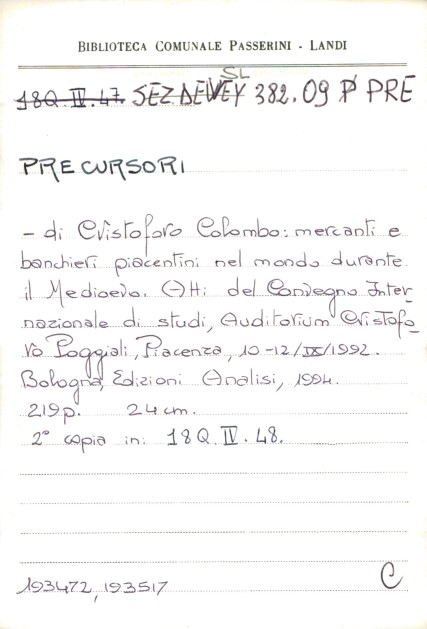 BIBLIOTECA COMUNALE PASSERINI - LANDI
SL
18Q.IV.47. SEZ DEWEY 382.09 P PRE
PRECURSORI
- di Cristoforo Colombo: mercanti e
banchieri piacentini nel mondo durante
il Medioevo. Atti del Convegno Inter-
nazionale di studi, Auditorium Cristofo-
ro Poggiali, Piacenza, 10-12/IX/1992.
Bologna, Edizioni Analisi, 1994.
219p. 24cm.
2° copia in: 18Q.IV.48.
193472, 193517
C